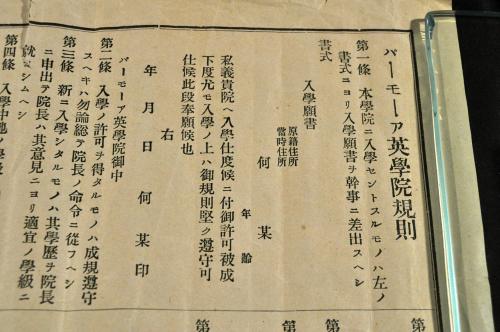 パーモーア英學院規則
第一條 本學院ニ入學セントスルモノハ左ノ
書式ニヨリ入學願書ヲ幹事ニ差出スヘシ
書式
入學願書
原籍住所
當時住所
何某
年齡
私義貴院ヘ入學仕度候ニ付御許可被成
下度尤モ入學ノ上ハ御規則堅ク遵守可
仕候此段奉願候也
右
年月日 何某印
パーモーア英學院御中
第二條 入學ノ許可ヲ得タルモノハ成規遵守
スヘキハ勿論総テ院長ノ命令ニ從フヘシ
第三條 新ニ入學シタルモノハ其學歷ヲ院長
ニ申出テ院長ハ其意見ニヨリ適宜ノ學級ニ
就カシムヘシ
第四條 入學
第
第
第
第